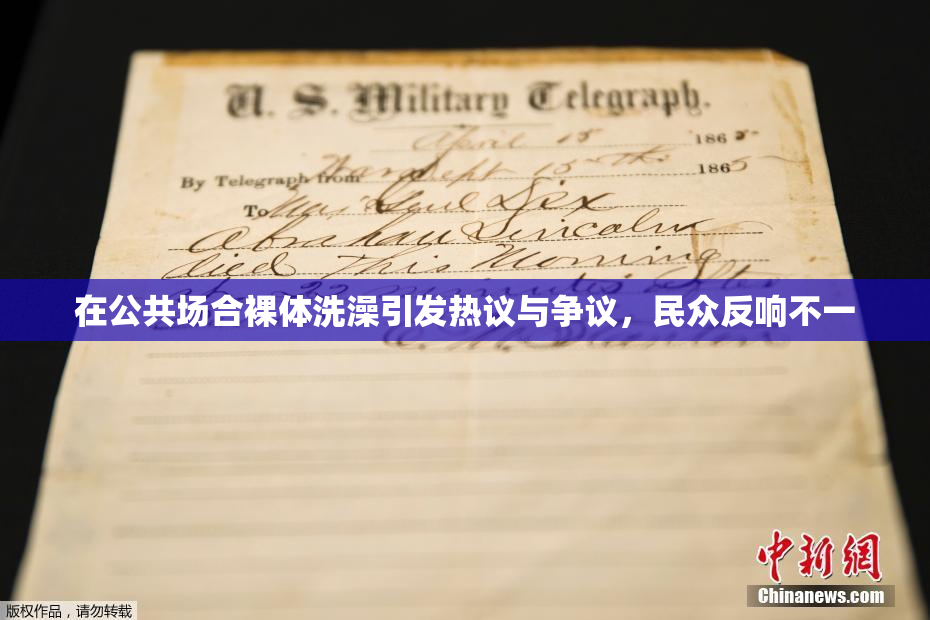 U. S. Military Telegraph.
April 15 1865
By Telegraph from War Dept 15th 1865
To Maj Genl Dix
Abraham Lincoln
died This Morning
22 minutes after
在公共场合裸体洗澡引发热议与争议，民众反响不一
E. M. Stanton
中新網
Chinanews.com
版权作品，请勿转载